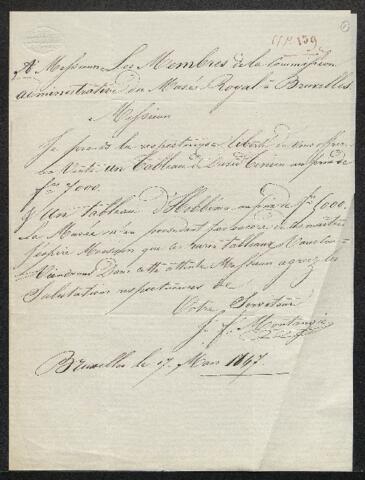 N° 159
A Messieurs Les Membres de la Commission
administrative du Musée Royal à Bruxelles.
Messieurs
Je prends la respectueuse liberté de vous offrir
la Vente un tableau de David Teniers au prix de
frs 7000.
& Un tableau d'Hobbéma au prix de frs 5000.
Le Musée n'en possédant pas encore de ces maîtres
J'espère Messieurs que ces rares tableaux Vous
Viendront Dans cette attente Messieurs agréez les
Salutations respectueuses de
Votre Serviteur
J. F.
Bruxelles le 17 Mars 1847